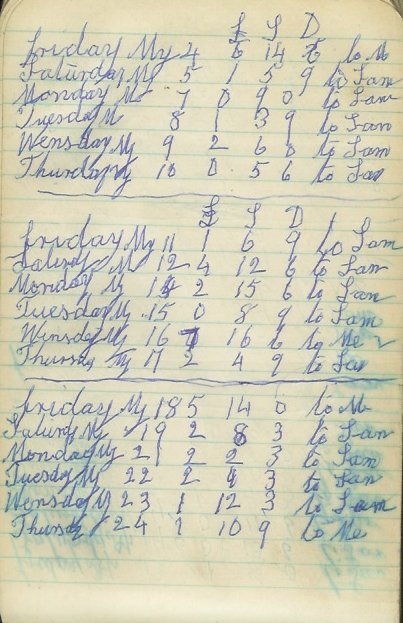 £ S D
Friday My 4 6 14 6 to M
Saturday My 5 1 5 9 to Sam
Monday M 7 0 9 0 to Sam
Tuesday M 8 1 3 9 to Sam
Wensday My 9 2 6 0 to Sam
Thursday My 10 0 5 6 to Sa
£ S D
Friday My 11 1 6 9 to Sam
Saturdy M 12 4 12 6 to Sam
Monday My 14 2 15 6 to Sam
Tuesday My 15 0 8 9 to Sam
Wensday My 16 16 6 to Me
Thursday My 17 2 4 9 to Sa
Friday My 18 5 14 0 to M
Saturdy My 19 2 8 3 to Sam
Monday My 21 2 2 3 to Sam
Tuesday My 22 2 3 to Sam
Wensday My 23 1 12 3 to Sam
Thursd 24 1 10 9 to Me